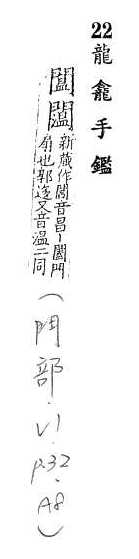 22 龍龕手鑑
新藏作閶音昌–闔門
扇也郭迻又音溫二同
(門部.V1.p.32.A8)